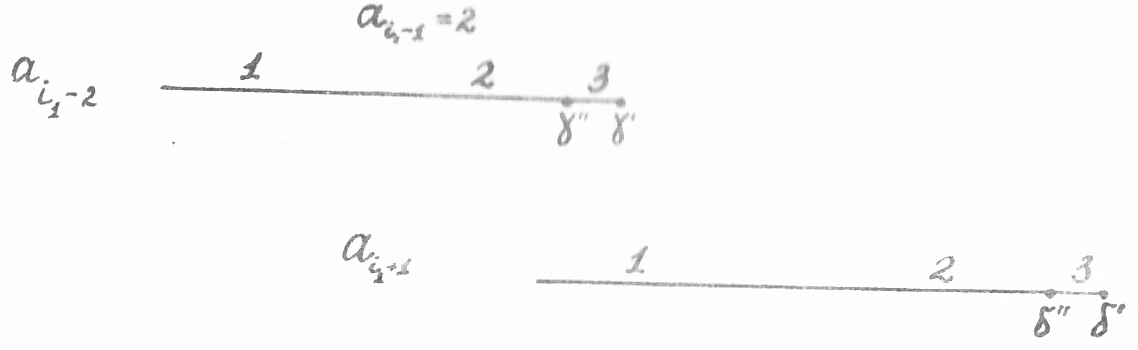 a_{i_1-1} = 2
a_{i_1-2} 1 2 3
γ'' γ'
a_{i_1+1} 1 2 3
δ'' δ'